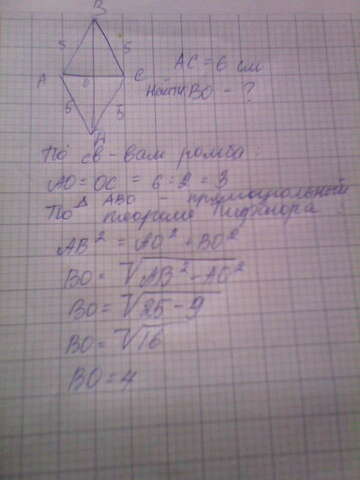 B
5 5
A 6 C
5 5
H
AC = 6 см
Найти BO - ?
По св-вам ромба:
AO = OC = 6 : 2 = 3
△ ABO - прямоугольный
По теореме Пифагора:
AB² = AO² + BO²
BO = √AB² - AO²
BO = √25 - 9
BO = √16
BO = 4